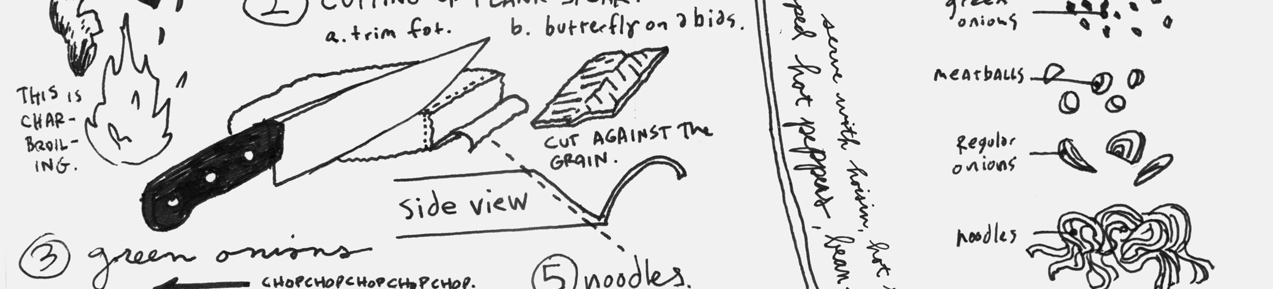 2 CUTTING UP FLANK STEAK:
a. trim fat.
b. butterfly on a bias.
THIS IS
CHAR-
BROIL-
ING.
CUT AGAINST The
GRAIN.
side view
3 green onions
CHOPCHOPCHOPCHOPCHOP.
5 noodles.
serve with hoisin, hot
hot peppers, bean
green
onions
MEATBALLS
Regular
onions
noodles